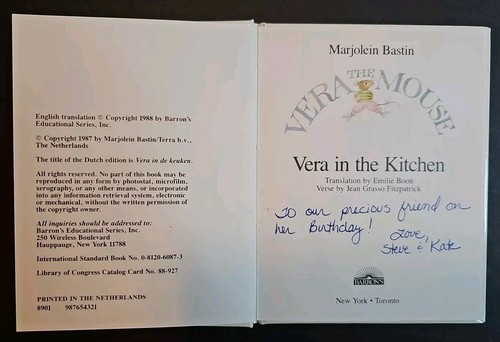 English translation © Copyright 1988 by Barron's
Educational Series, Inc.
© Copyright 1987 by Marjolein Bastin/Terra b.v.,
The Netherlands
The title of the Dutch edition is Vera in de keuken.
All rights reserved. No part of this book may be
reproduced in any form by photostat, microfilm,
xerography, or any other means, or incorporated
into any information retrieval system, electronic
or mechanical, without the written permission of
the copyright owner.
All inquiries should be addressed to:
Barron's Educational Series, Inc.
250 Wireless Boulevard
Hauppauge, New York 11788
International Standard Book No. 0-8120-6087-3
Library of Congress Catalog Card No. 88-927
PRINTED IN THE NETHERLANDS
8901 987654321
Marjolein Bastin
VERA THE MOUSE
Vera in the Kitchen
Translation by Emilie Boon
Verse by Jean Grasso Fitzpatrick
To our precious friend on
her Birthday!
Love,
Steve & Kate
BARRON'S
New York • Toronto